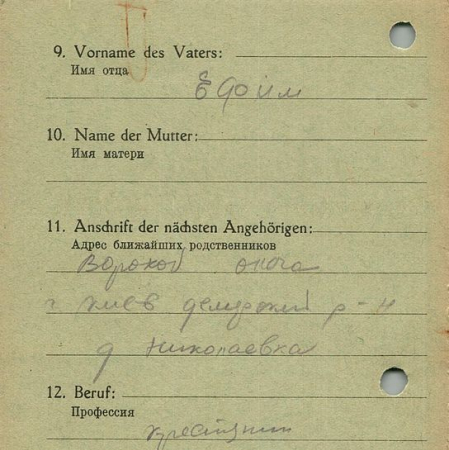 9. Vorname des Vaters:
Имя отца
Ефоим
10. Name der Mutter:
Имя матери
11. Anschrift der nächsten Angehörigen:
Адрес ближайших родственников
г Киев р-н
д Николаевка
12. Beruf:
Профессия